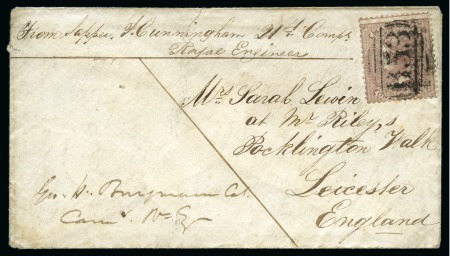 From Sapper J. Cunningham 21st Compy
Royal Engineers
Mrs Sarah Lewin
at Mr Riley,s
Pocklington Walk
Leicester
England
B53